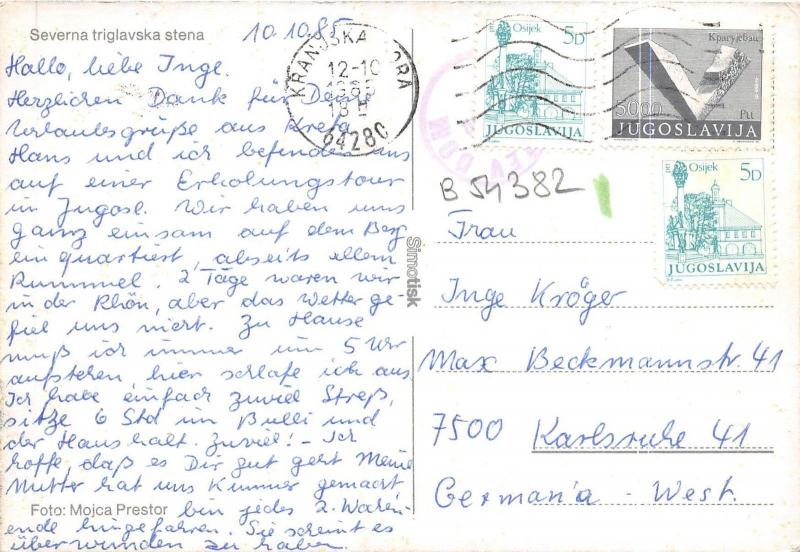 Severna triglavska stena
10.10.85
Hallo, liebe Inge.
Herzlichen Dank für Deine
Urlaubsgrüße aus Kreta
Hans und ich befinden uns
auf einer Erholungstour
in Jugosl. Wir haben uns
ganz einsam auf dem Berg
einquartiert, abseits allem
Rummel. 2 Tage waren wir
in der Rhön, aber das Wetter ge-
fiel uns nicht. Zu Hause
muß ich immer um 5 Uhr
aufstehen, hier schlafe ich aus.
Ich habe einfach zuviel Streß,
sitze 6 Std im Bulli und
der Haushalt. Zuviel! - Ich
hoffe, daß es Dir gut geht Meine
Mutter hat uns Kummer gemacht
Foto: Mojca Prestor bin jedes 2. Wochen-
ende hingefahren. Sie scheint es
überwunden zu haben.
Simotisk
KRANJSKA GORA
12-10
1985
64280
Osijek 5D
JUGOSLAVIJA
Крагујевац
5000 Ди
JUGOSLAVIJA
Osijek 5D
JUGOSLAVIJA
B 54382
Frau
Inge Kröger
Max Beckmannstr. 41
7500 Karlsruhe 41
Germania - West.